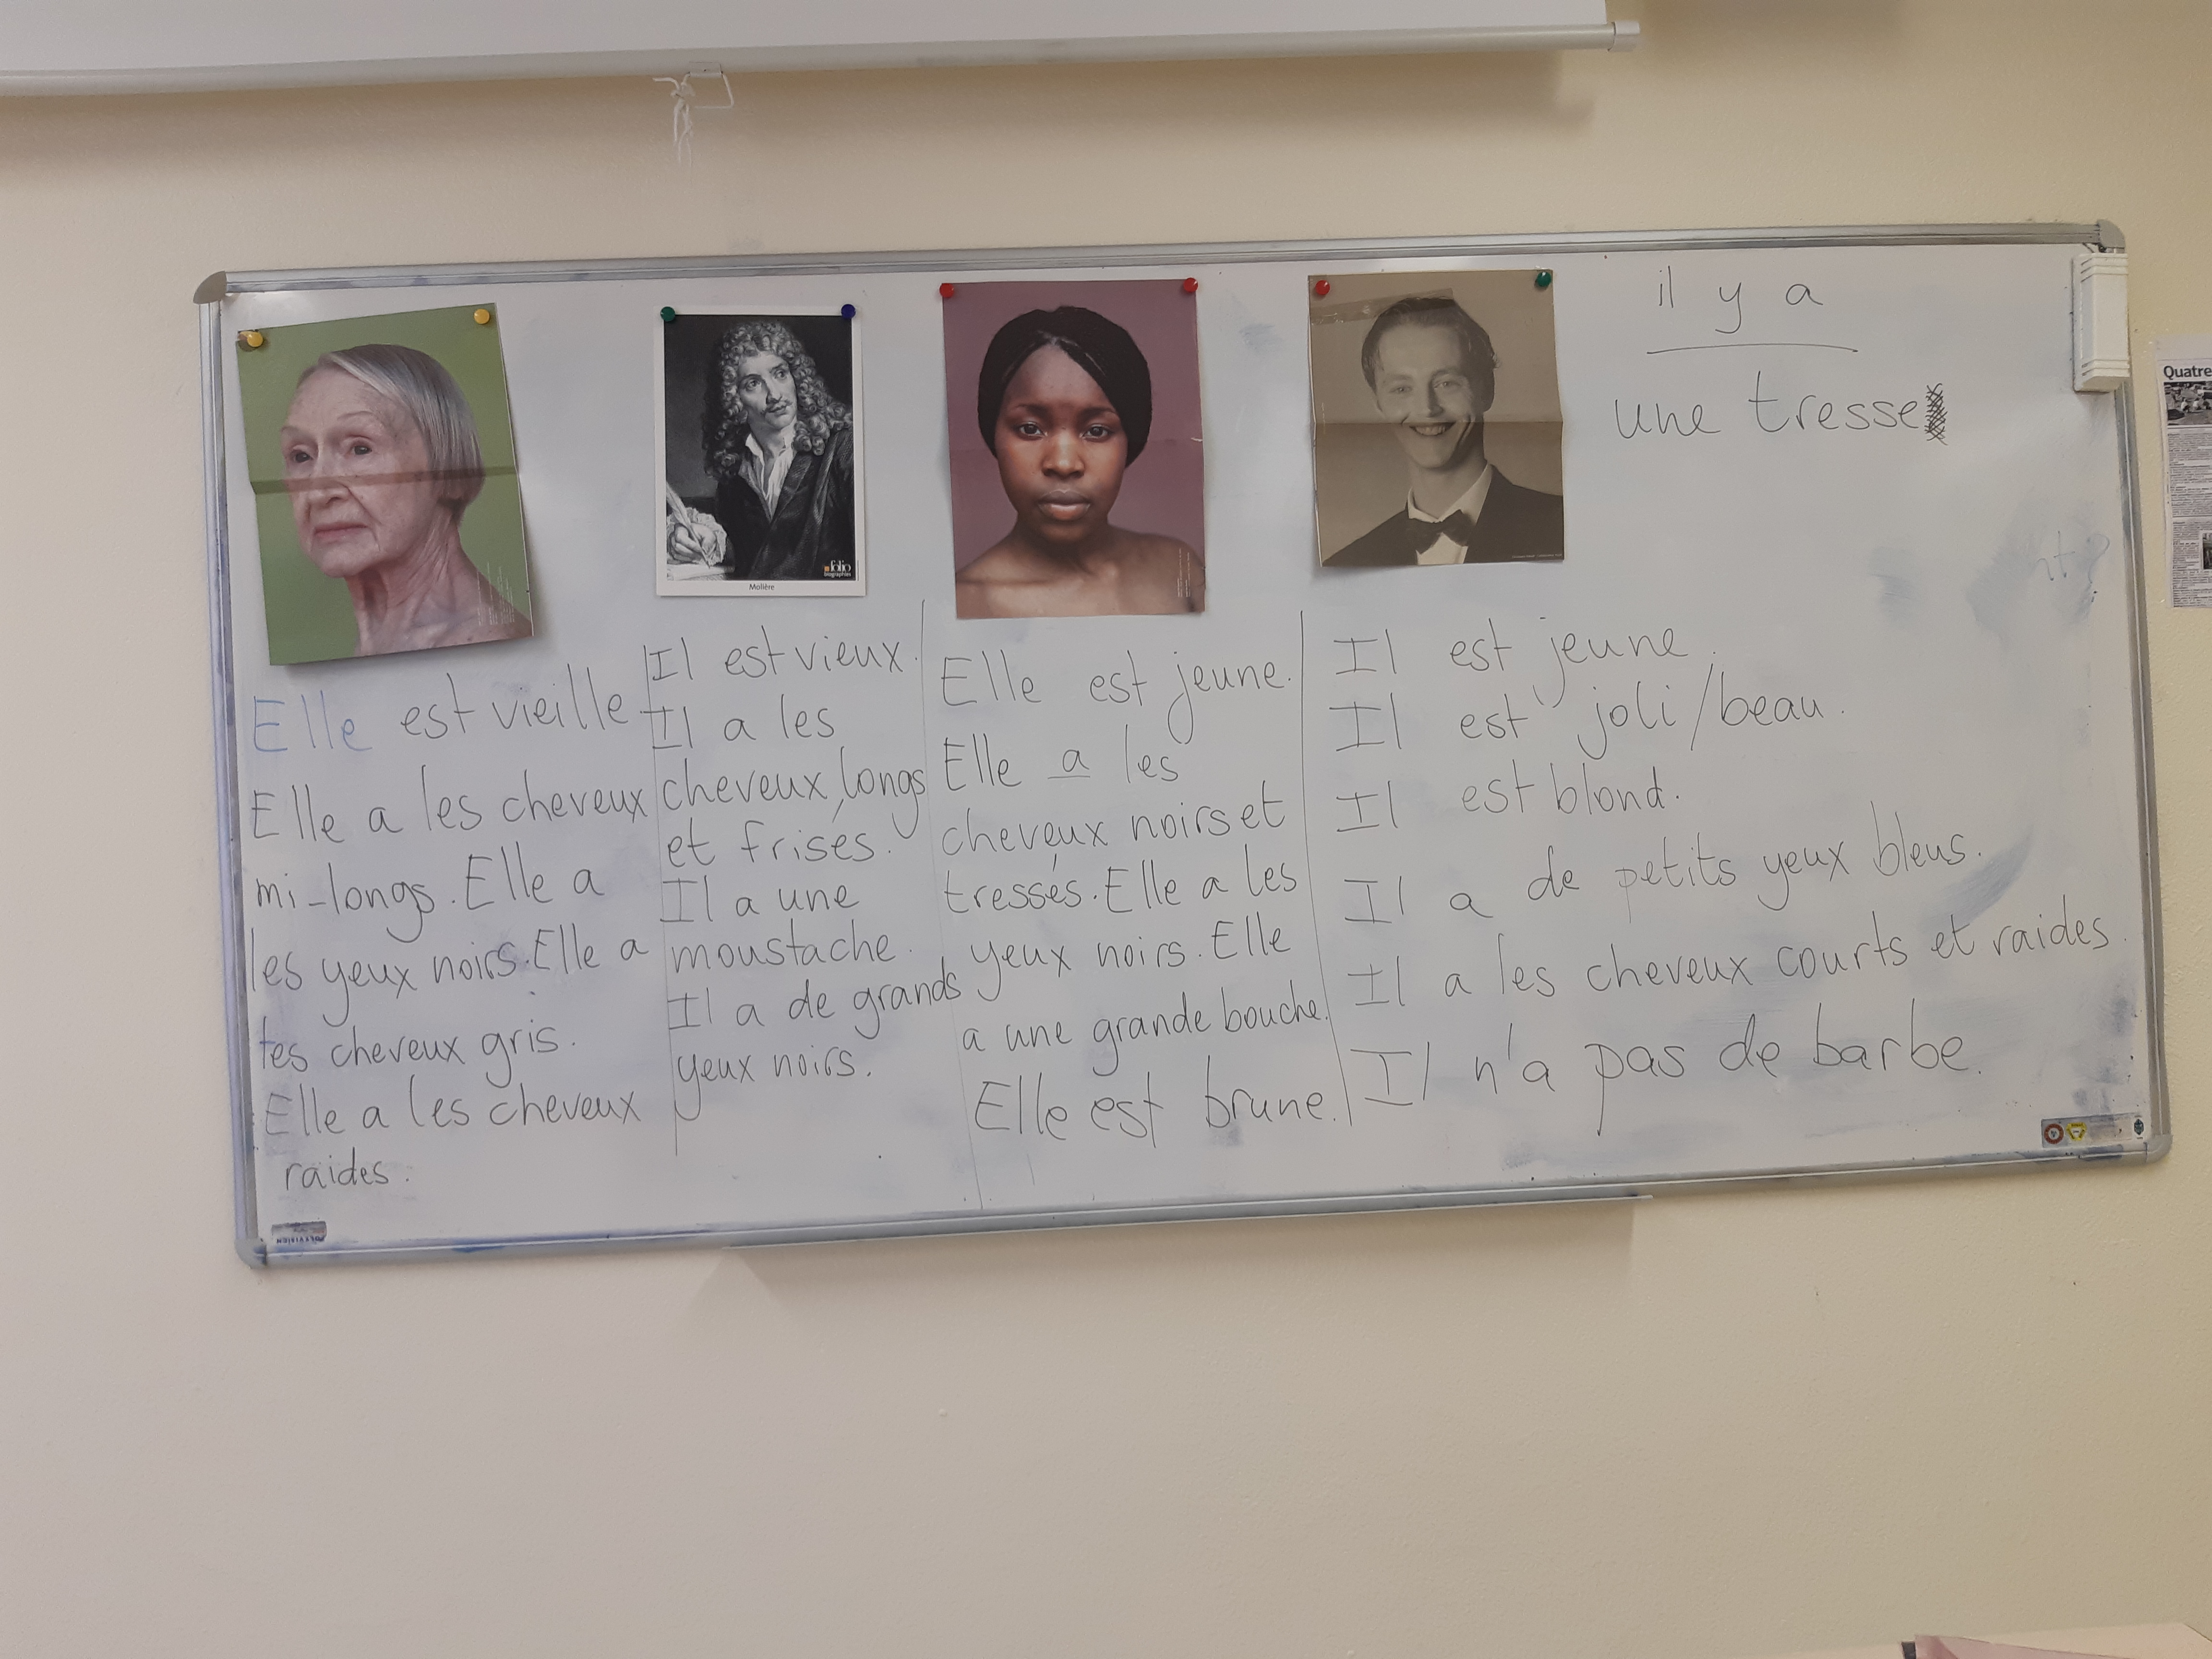 il y a
une tresse
Quatre
folio
biographies
Molière
Elle est vieille
Elle a les cheveux
mi-longs. Elle a
les yeux noirs. Elle a
les cheveux gris.
Elle a les cheveux
raides.
Il est vieux.
Il a les
cheveux longs
et frisés.
Il a une
moustache.
Il a de grands
yeux noirs.
Elle est jeune.
Elle a les
cheveux noirs et
tressés. Elle a les
yeux noirs. Elle
a une grande bouche.
Elle est brune.
Il est jeune.
Il est joli/beau.
Il est blond.
Il a de petits yeux bleus.
Il a les cheveux courts et raides.
Il n'a pas de barbe.